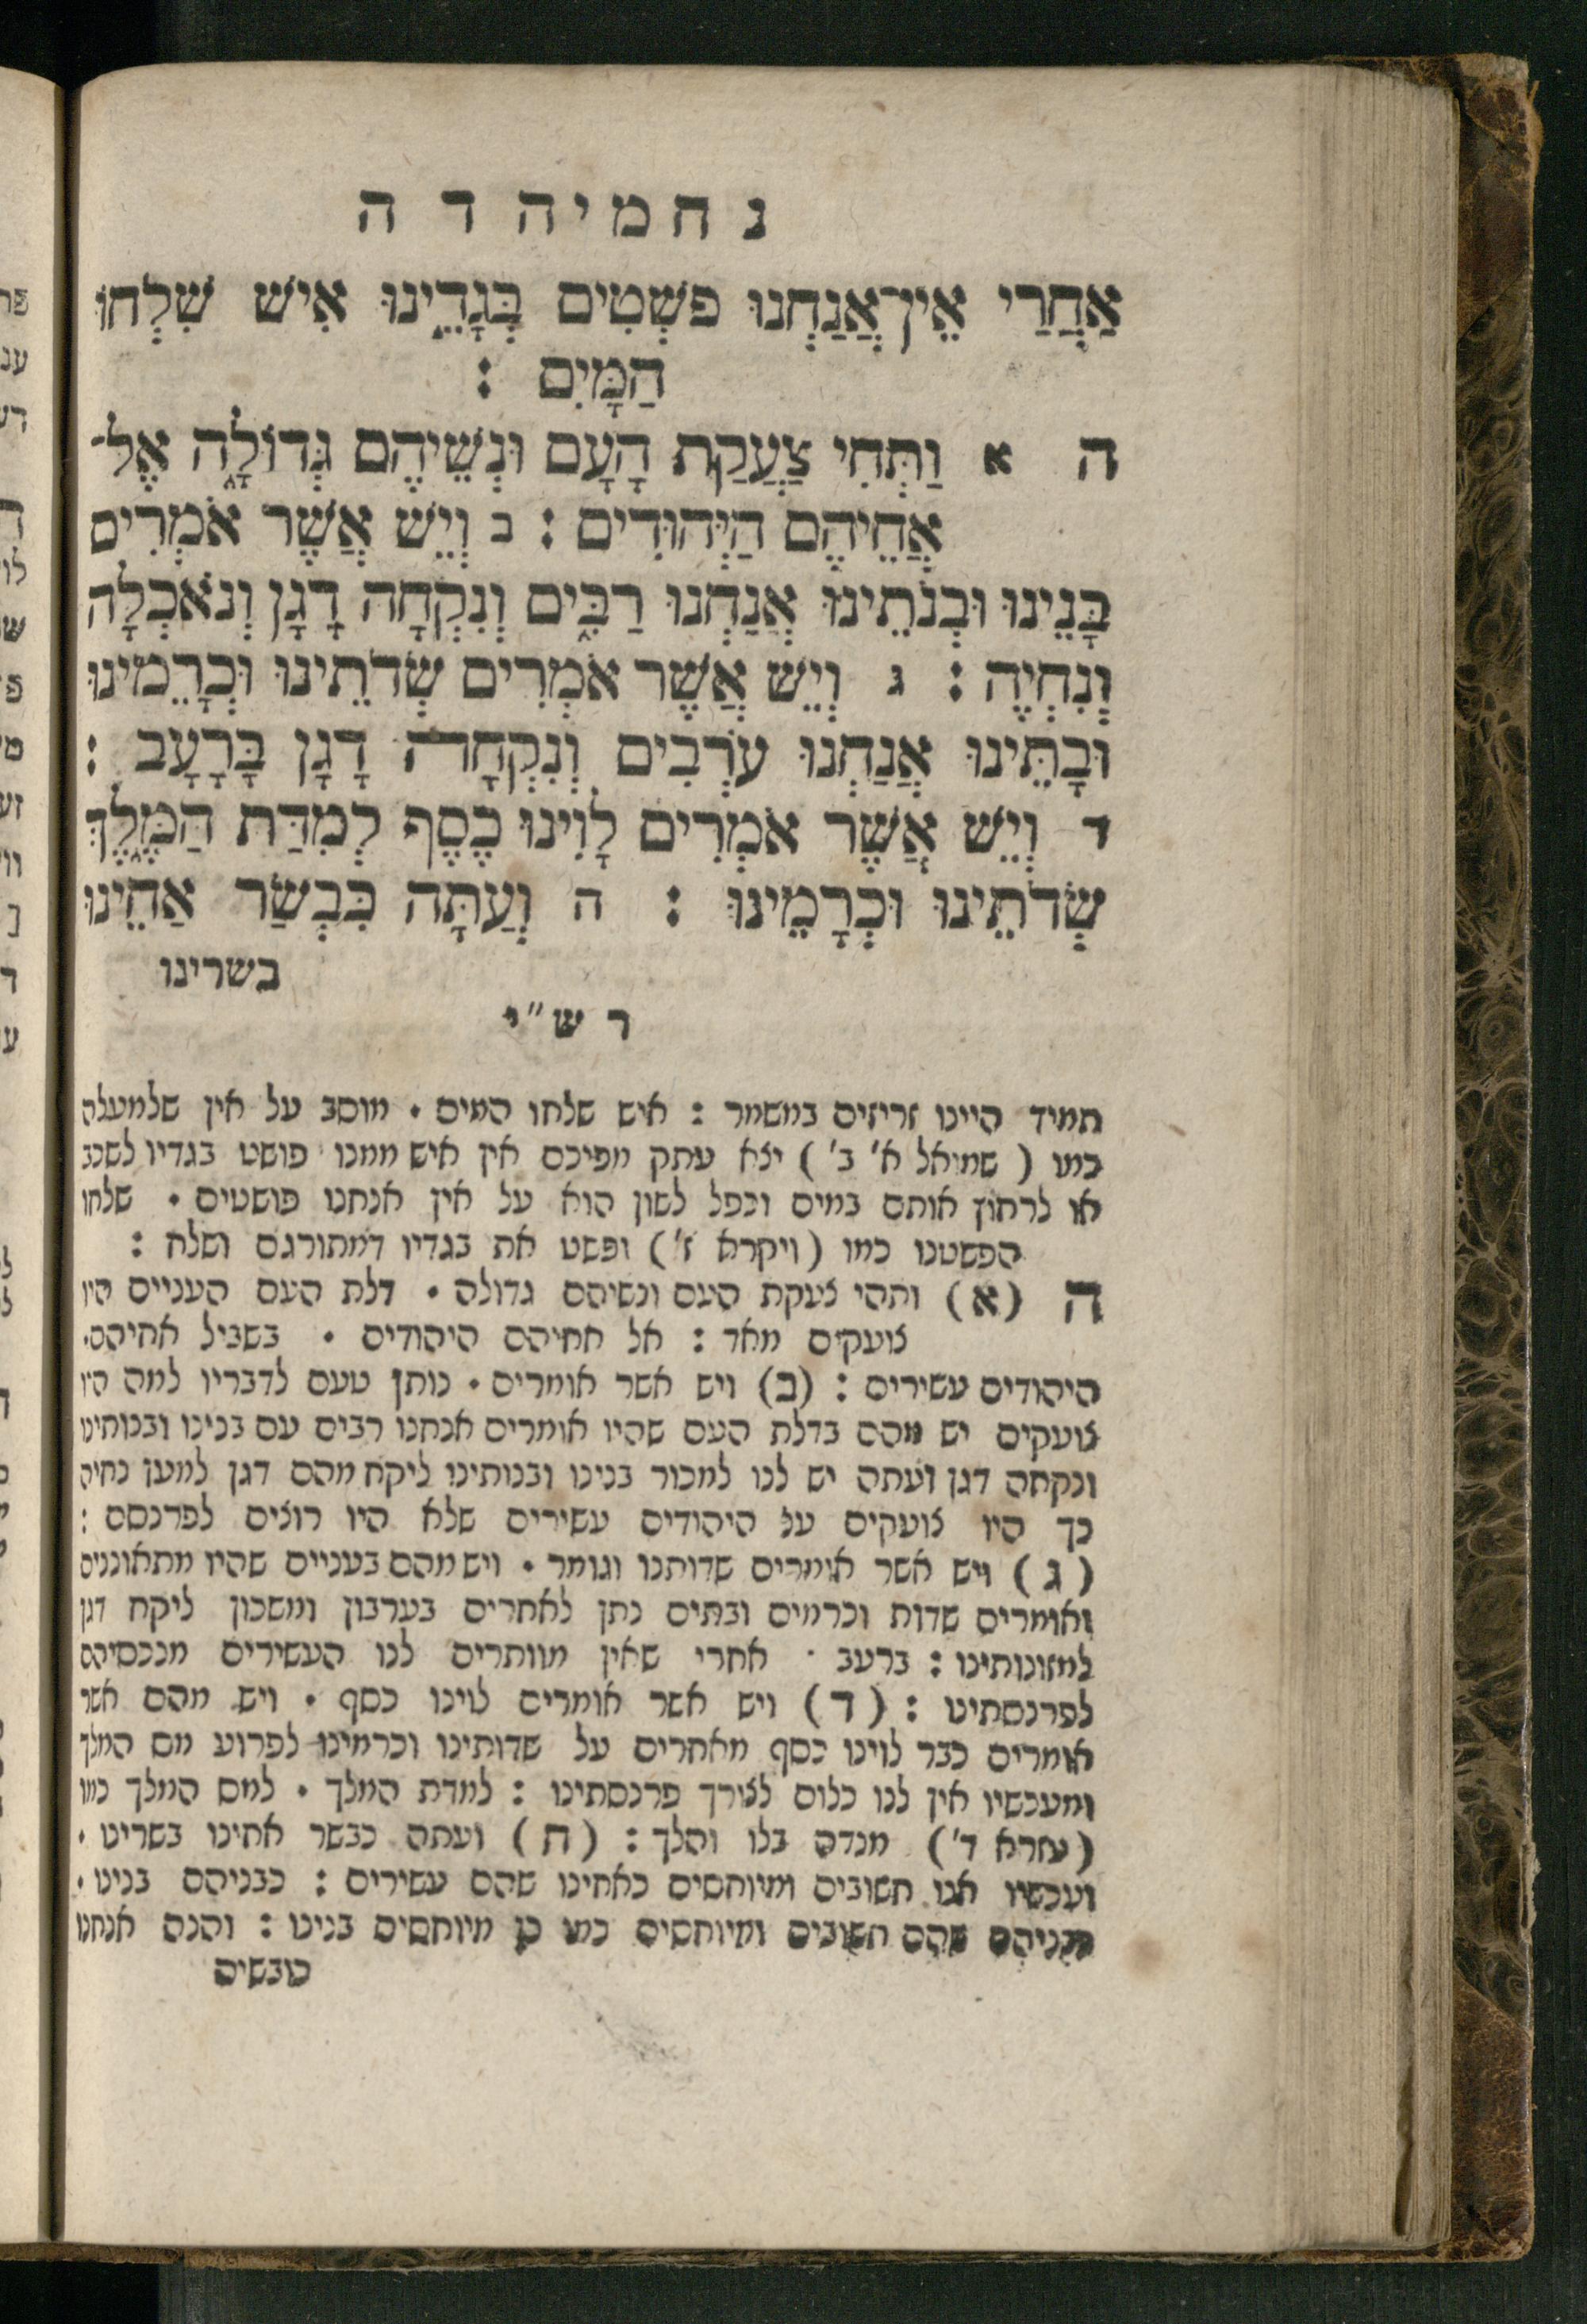 נחמיה ד ה
אַחֲרַי אֵין־אֲנַחְנוּ פֹשְׁטִים בְּגָדֵינוּ אִישׁ שִׁלְחוֹ
הַמָּיִם :
ה א וַתְּהִי צַעֲקַת הָעָם וּנְשֵׁיהֶם גְּדוֹלָה אֶל־
אֲחֵיהֶם הַיְּהוּדִים : ב וְיֵשׁ אֲשֶׁר אֹמְרִים
בָּנֵינוּ וּבְנֹתֵינוּ אֲנַחְנוּ רַבִּים וְנִקְחָה דָגָן וְנֹאכְלָה
וְנִחְיֶה : ג וְיֵשׁ אֲשֶׁר אֹמְרִים שְׂדֹתֵינוּ וּכְרָמֵינוּ
וּבָתֵּינוּ אֲנַחְנוּ עֹרְבִים וְנִקְחָה דָגָן בָּרָעָב :
ד וְיֵשׁ אֲשֶׁר אֹמְרִים לָוִינוּ כֶסֶף לְמִדַּת הַמֶּלֶךְ
שְׂדֹתֵינוּ וּכְרָמֵינוּ : ה וְעַתָּה כִּבְשַׂר אַחֵינוּ
בשרינו
רש״י
תמיד היינו זריזים במשמר : איש שלחו המים • מוסב על אין שלמעלה
כמו ( שמואל א' ב' ) יצא עתק מפיכם אין איש ממנו פושט בגדיו לשכב
או לרחוץ אותם במים וכפל לשון הוא על אין אנחנו פושטים • שלחו
הפשטנו כמו (ויקרא ז') ופשט את בגדיו דמתורגם ושלח :
ה (א) ותהי צעקת העם ונשיהם גדולה • דלת העם העניים היו
צועקים מאד : אל אחיהם היהודים • בשביל אחיהם
היהודים עשירים : (ב) ויש אשר אומרים • נותן טעם לדבריו למה היו
צועקים יש מהם בדלת העם שהיו אומרים אנחנו רבים עם בנינו ובנותינו
ונקחה דגן ועתה יש לנו למכור בנינו ובנותינו ליקח מהם דגן למען נחיה
כך היו צועקים על היהודים עשירים שלא היו רוצים לפרנסם :
(ג) ויש אשר אומרים שדותנו וגומר • ויש מהם בעניים שהיו מתאוננים
ואומרים שדות וכרמים ובתים נתן לאחרים בערבון ומשכון ליקח דגן
למזונותינו : ברעב • אחרי שאין מוותרים לנו העשירים מנכסיהם
לפרנסתינו : (ד) ויש אשר אומרים לוינו כסף • ויש מהם אשר
אומרים כבר לוינו כסף מאחרים על שדותינו וכרמינו לפרוע מס המלך
ומעכשיו אין לנו כלום לצורך פרנסתינו : למדת המלך • למס המלך כמו
(עזרא ד') מנדה בלו והלך : (ח) ועתה כבשר אחינו בשרינו •
ועכשיו אנו חשובים ומיוחסים כאחינו שהם עשירים : כבניהם בנינו •
כבניהם שהם חשובים ומיוחסים כמו כן מיוחסים בנינו : והנה אנחנו
כובשים